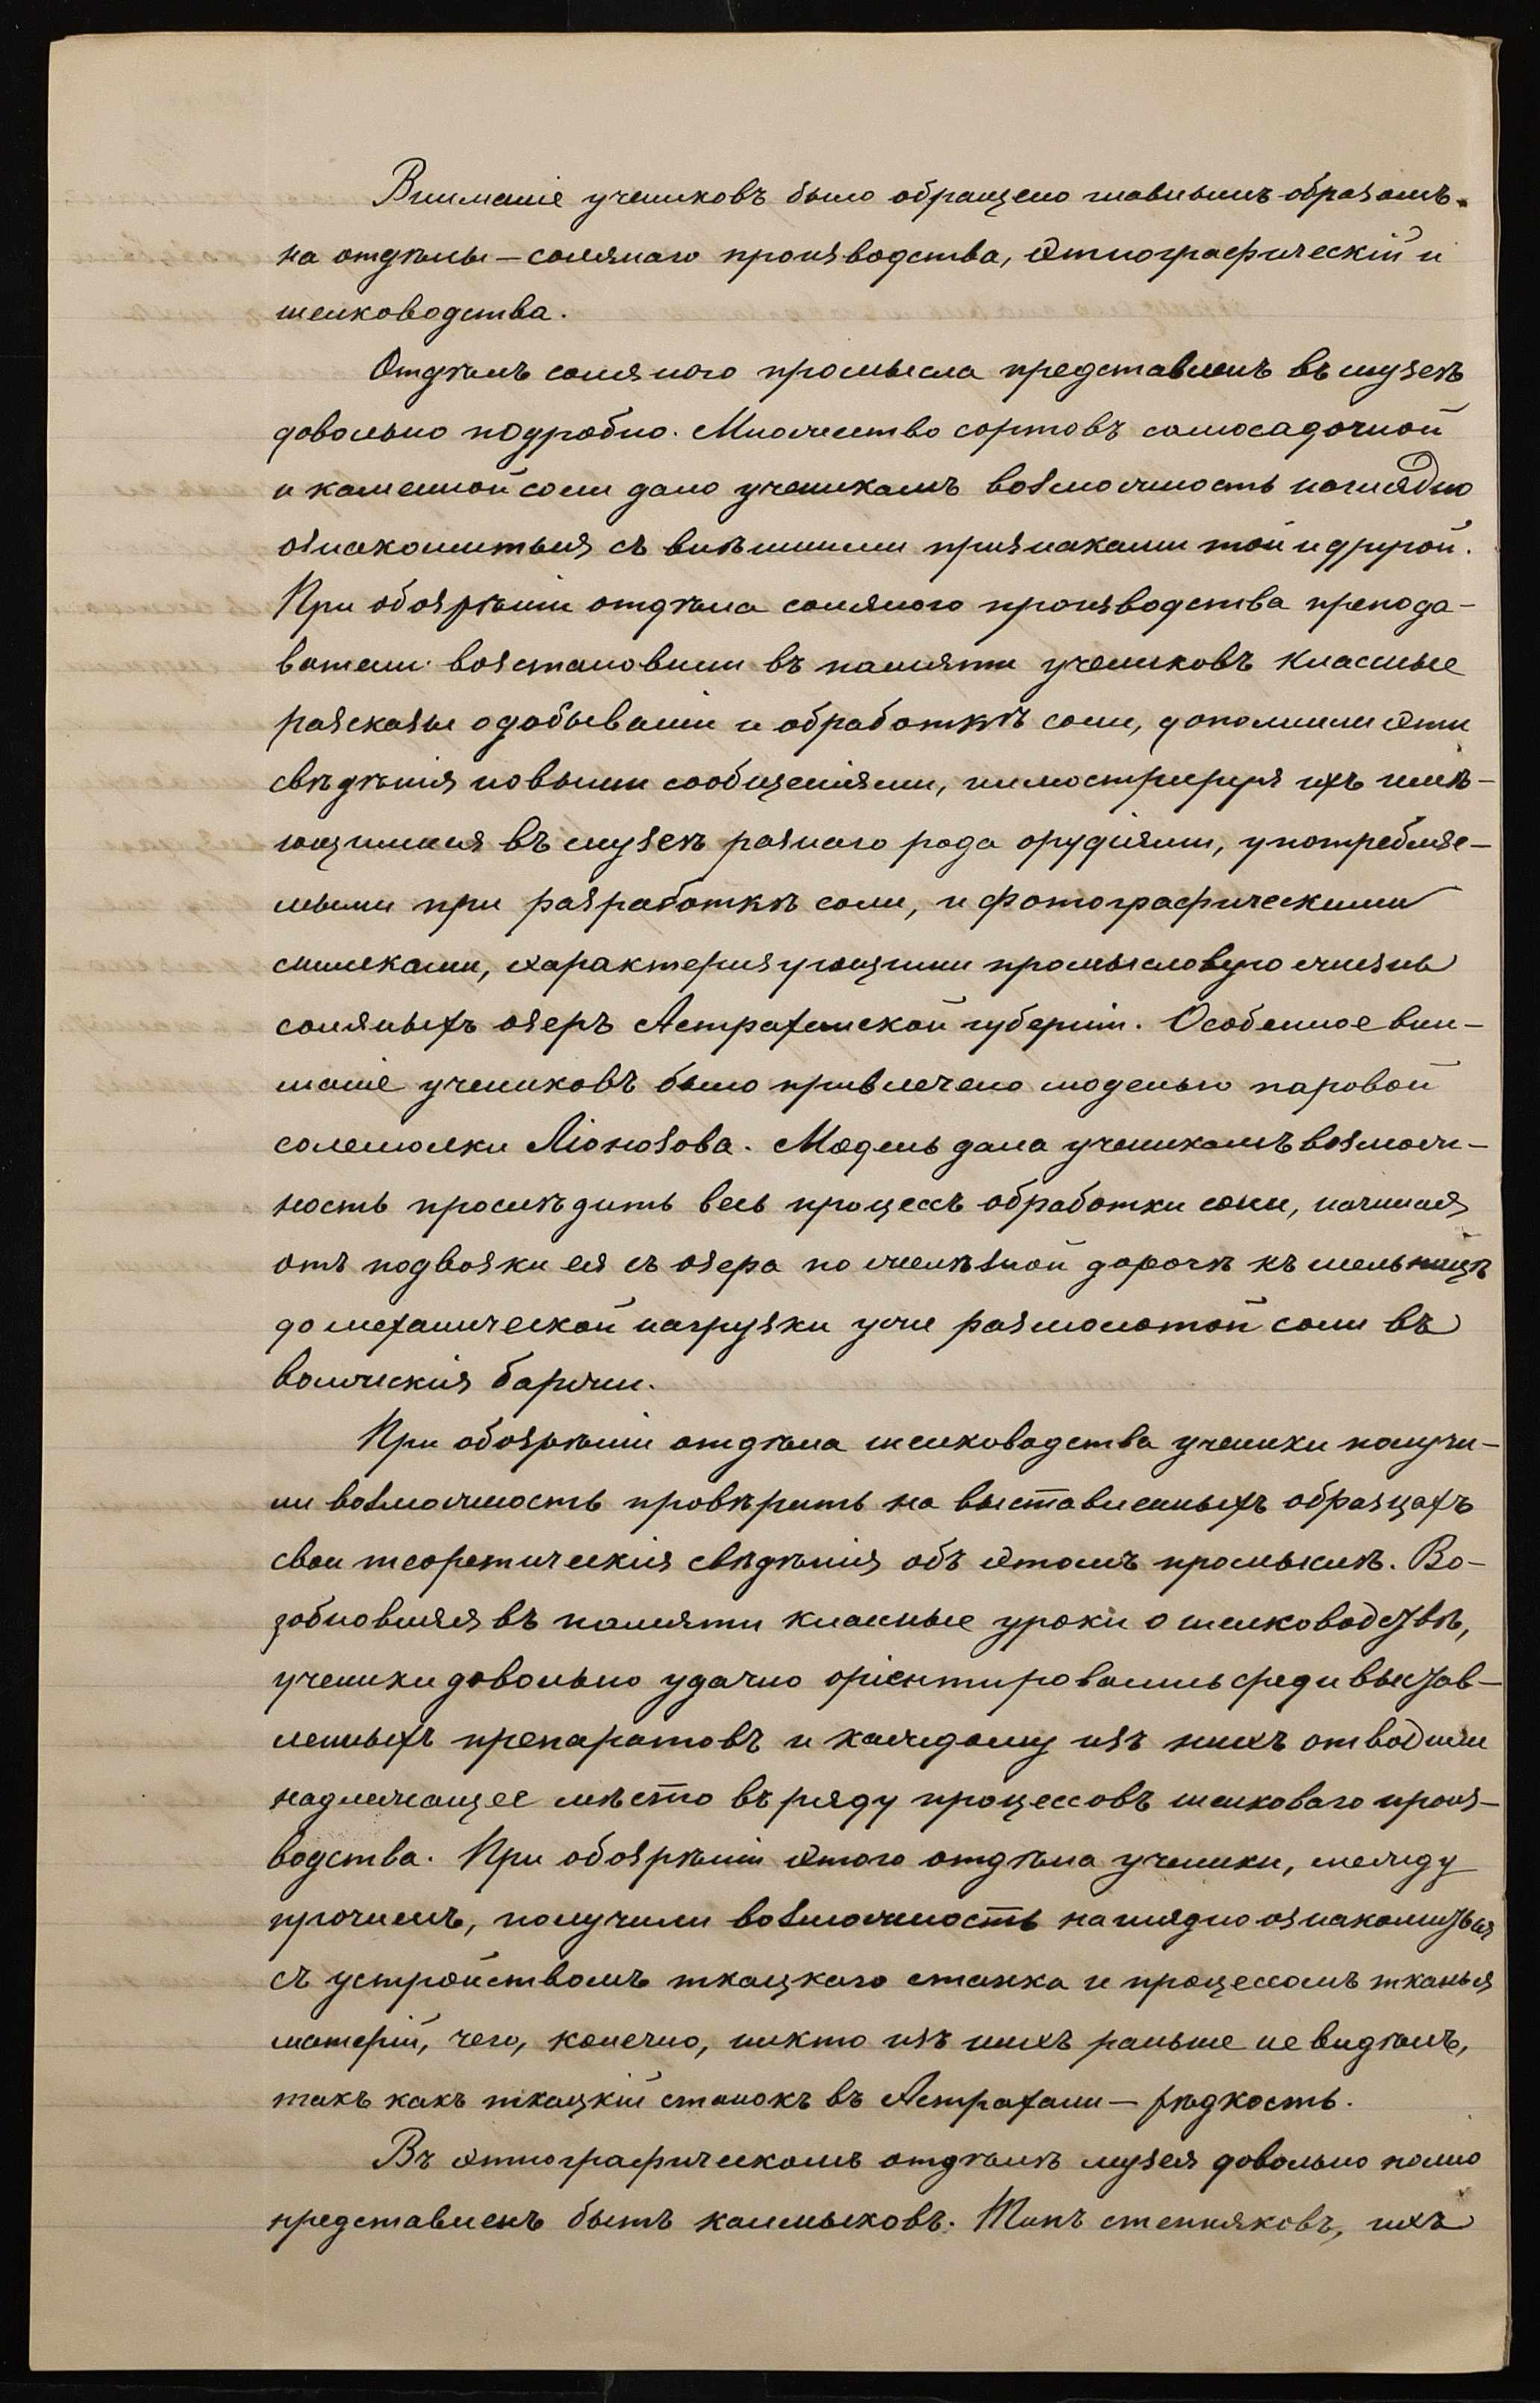 Вниманіе учениковъ было обращено главнымъ образомъ
на отдѣлы – солянаго производства, этнографическій и
шелководства.
Отдѣлъ солянаго промысла представленъ въ музеѣ
довольно подробно. Множество сортовъ самосадочной
и каменной соли дало ученикамъ возможность наглядно
ознакомиться съ внѣшними признаками той и другой.
При обозрѣніи отдѣла солянаго производства препода-
ватели возстановили въ памяти учениковъ классные
разсказы о добываніи и обработкѣ соли, дополнили эти
свѣдѣнія новыми сообщеніями, иллюстрируя ихъ имѣ-
ющимися въ музеѣ разнаго рода орудіями, употребляе-
мыми при разработкѣ соли, и фотографическими
снимками, характеризующими промысловую жизнь
соляныхъ озеръ Астраханской губерніи. Особенное вни-
маніе учениковъ было привлечено моделью паровой
солемолки Ліонозова. Модель дала ученикамъ возмож-
ность прослѣдить весь процессъ обработки соли, начиная
отъ подвозки ея съ озера по желѣзной дорогѣ къ мельницѣ
до механической нагрузки уже размолотой соли въ
волжскія баржи.
При обозрѣніи отдѣла шелководства ученики получи-
ли возможность провѣрить на выставленныхъ образцахъ
свои теоретическія свѣдѣнія объ этомъ промыслѣ. Во-
зобновляя въ памяти классные уроки о шелководствѣ,
ученики довольно удачно оріентировались среди выстав-
ленныхъ препаратовъ и каждому изъ нихъ отводили
надлежащее мѣсто въ ряду процессовъ шелковаго произ-
водства. При обозрѣніи этого отдѣла ученики, между
прочимъ, получили возможность наглядно ознакомиться
съ устройствомъ ткацкаго станка и процессомъ тканья
матерій, чего, конечно, никто изъ нихъ раньше не видѣлъ,
такъ какъ ткацкій станокъ въ Астрахани – рѣдкость.
Въ этнографическомъ отдѣлѣ музея довольно полно
представленъ бытъ калмыковъ. Типъ степняковъ, ихъ